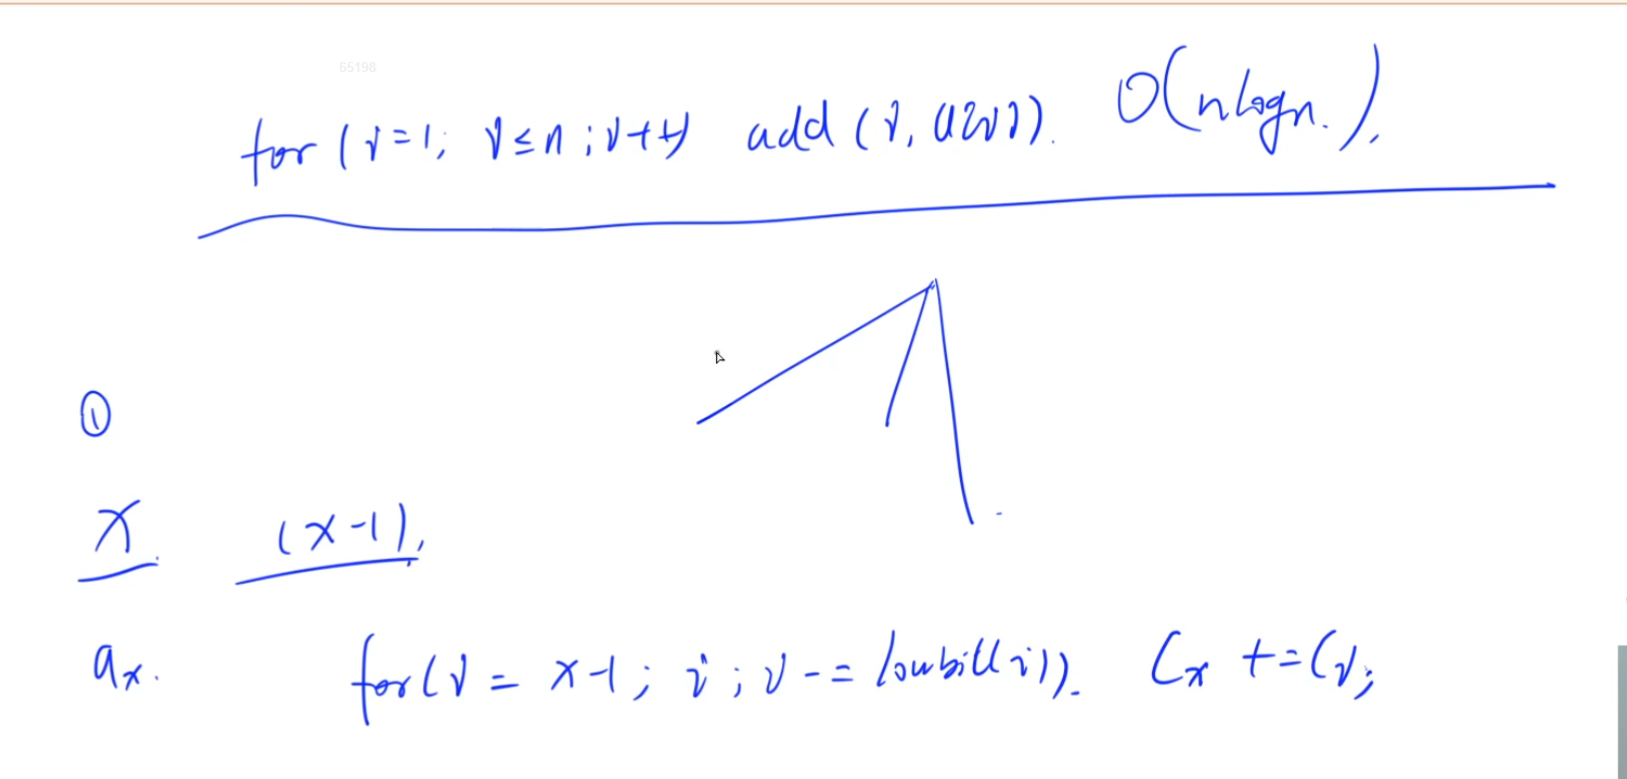 65198
for (i=1; i≤n; i++) add(i, a[i]). O(nlogn.).
①
x. (x-1),
ax.
for(i = x-1; i; i -= lowbit(i)). Cx += Ci;